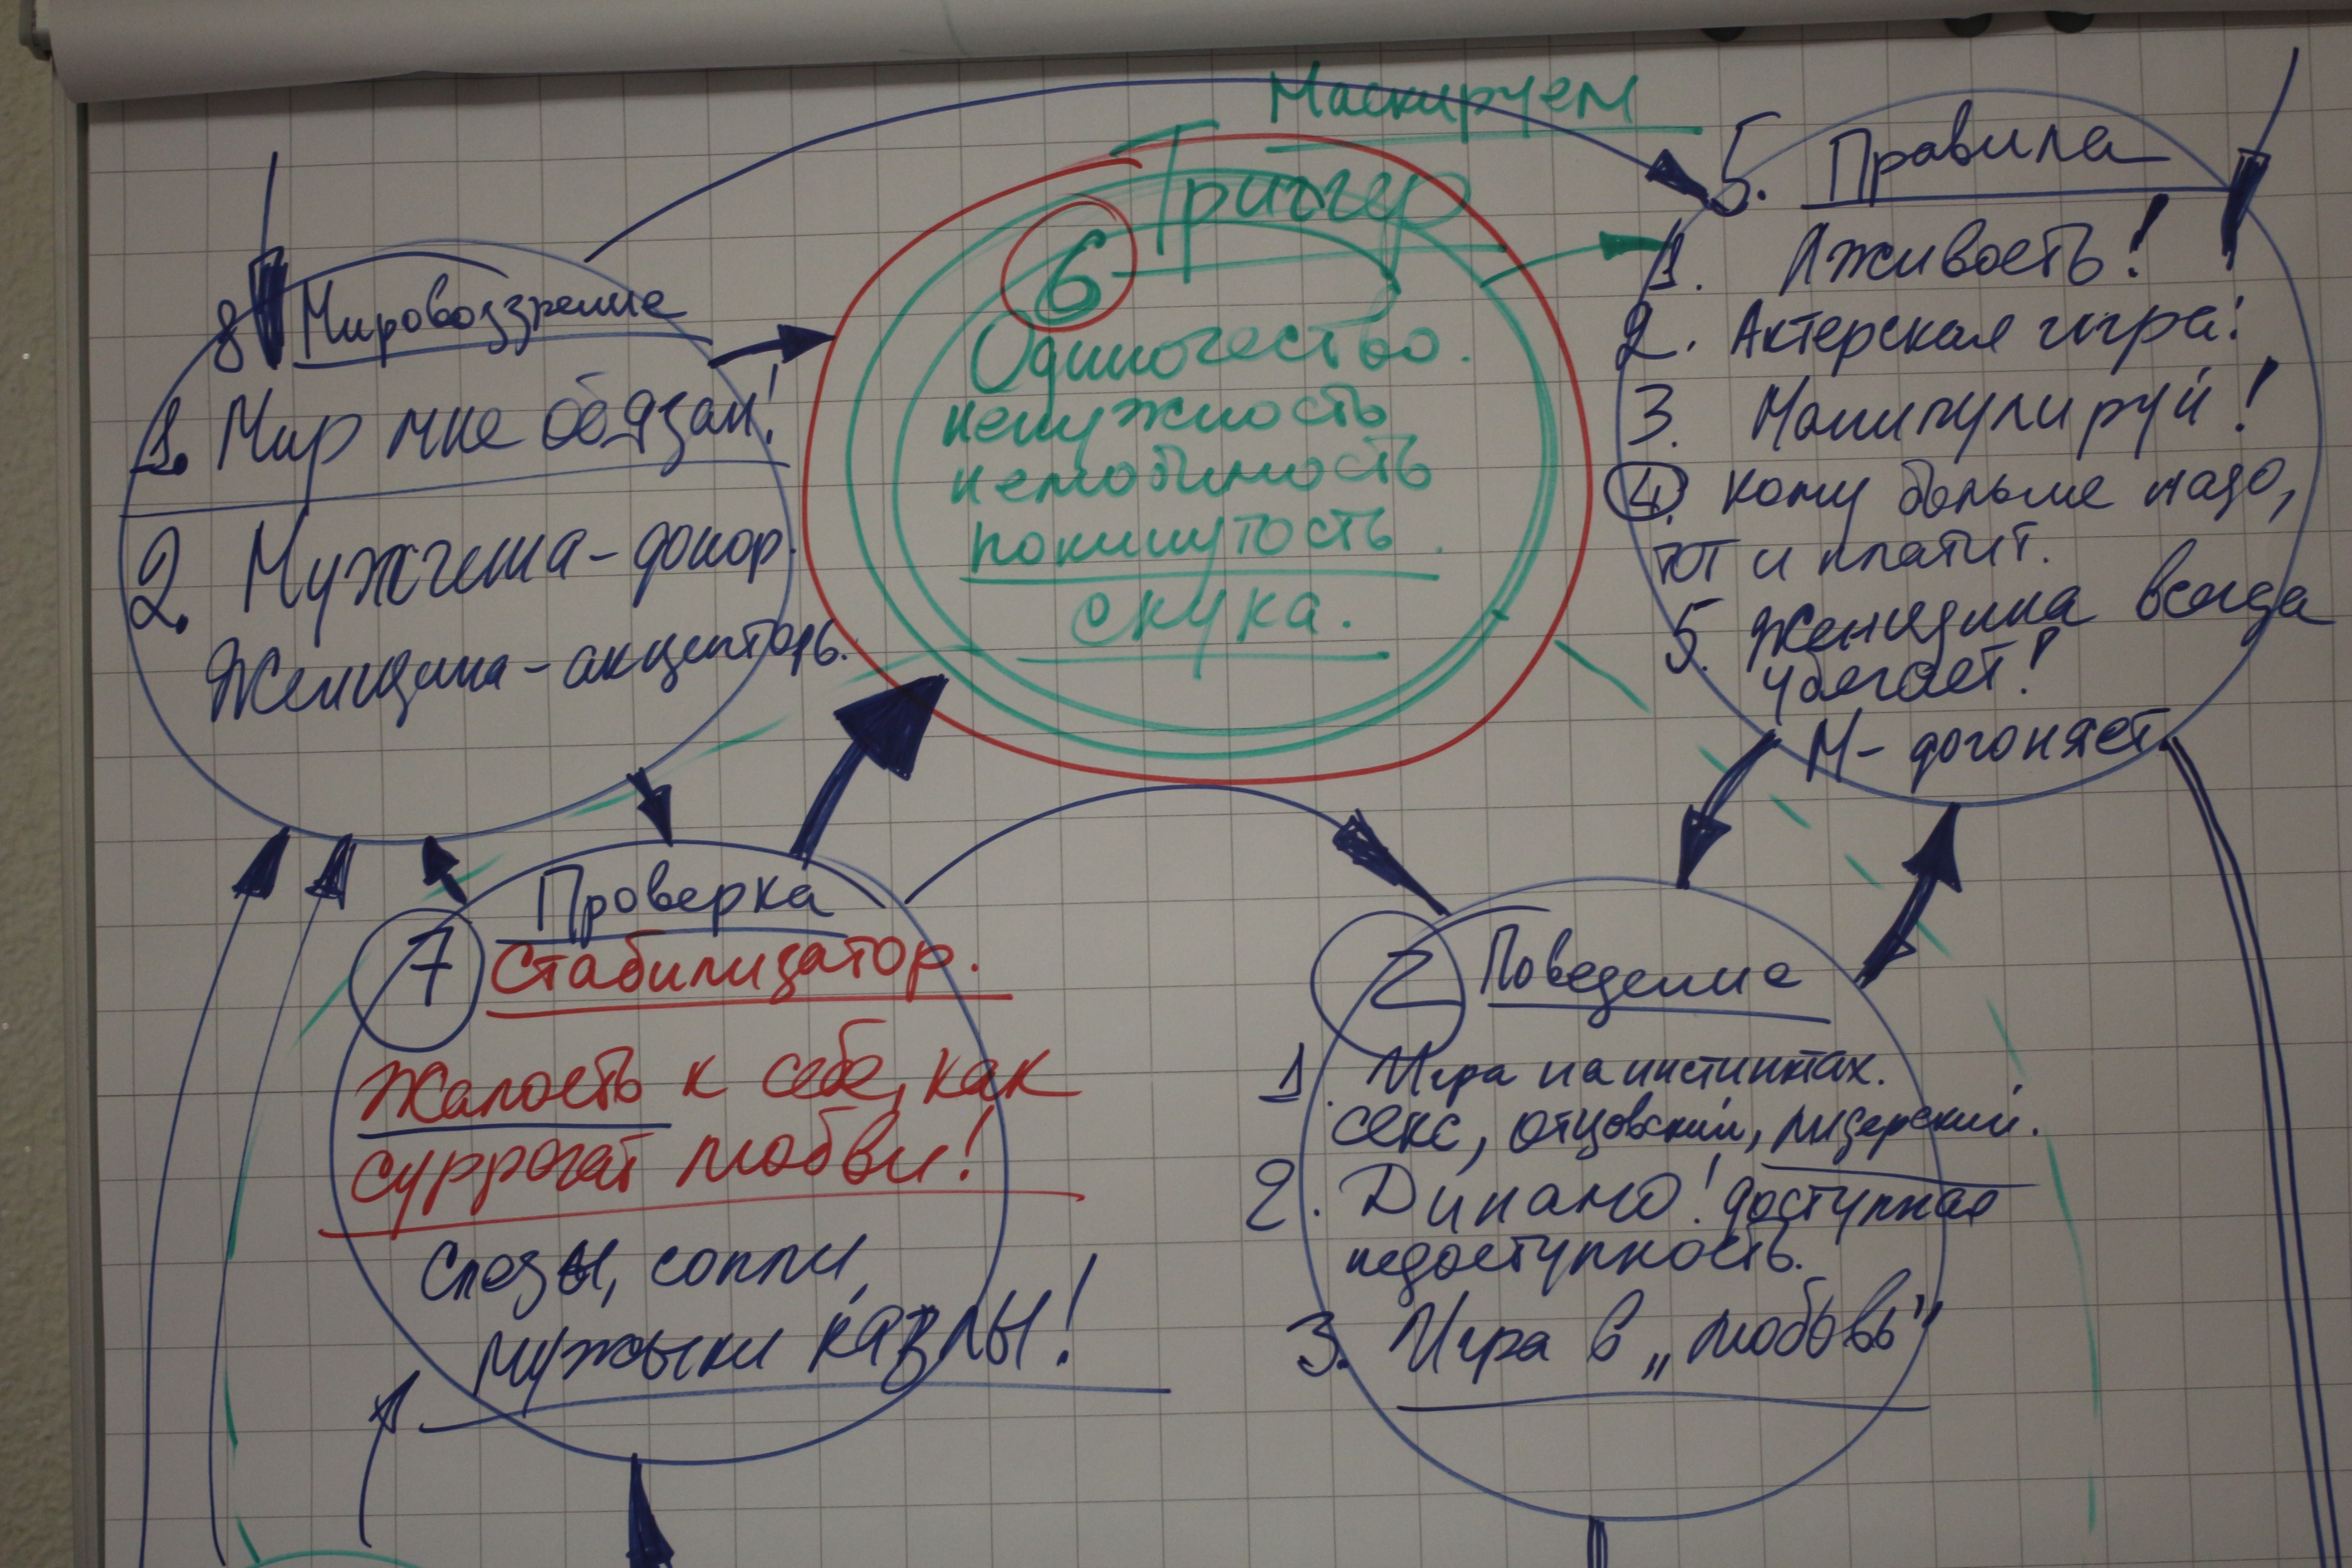 Маскируем
Триггер
6
Одиночество.
ненужность
нелюбимость
покинутость.
скука.
8 Мировоззрение
1. Мир мне обязан!
2. Мужчина-донор.
Женщина-акцепторь.
5. Правила
1. Лживость!
2. Актерская игра!
3. Манипулируй!
4. Кому больше надо,
тот и платит.
5. Женщина всегда
убегает!
М- догоняет.
7 Проверка
Стабилизатор.
Жалость к себе, как
суррогат любви!
Слезы, сопли,
мужыки казлы!
2 Поведение
1. Игра на инстинктах.
секс, отцовский, лидерский.
2. Динамо! доступная
недоступность.
3. Игра в „любовь"